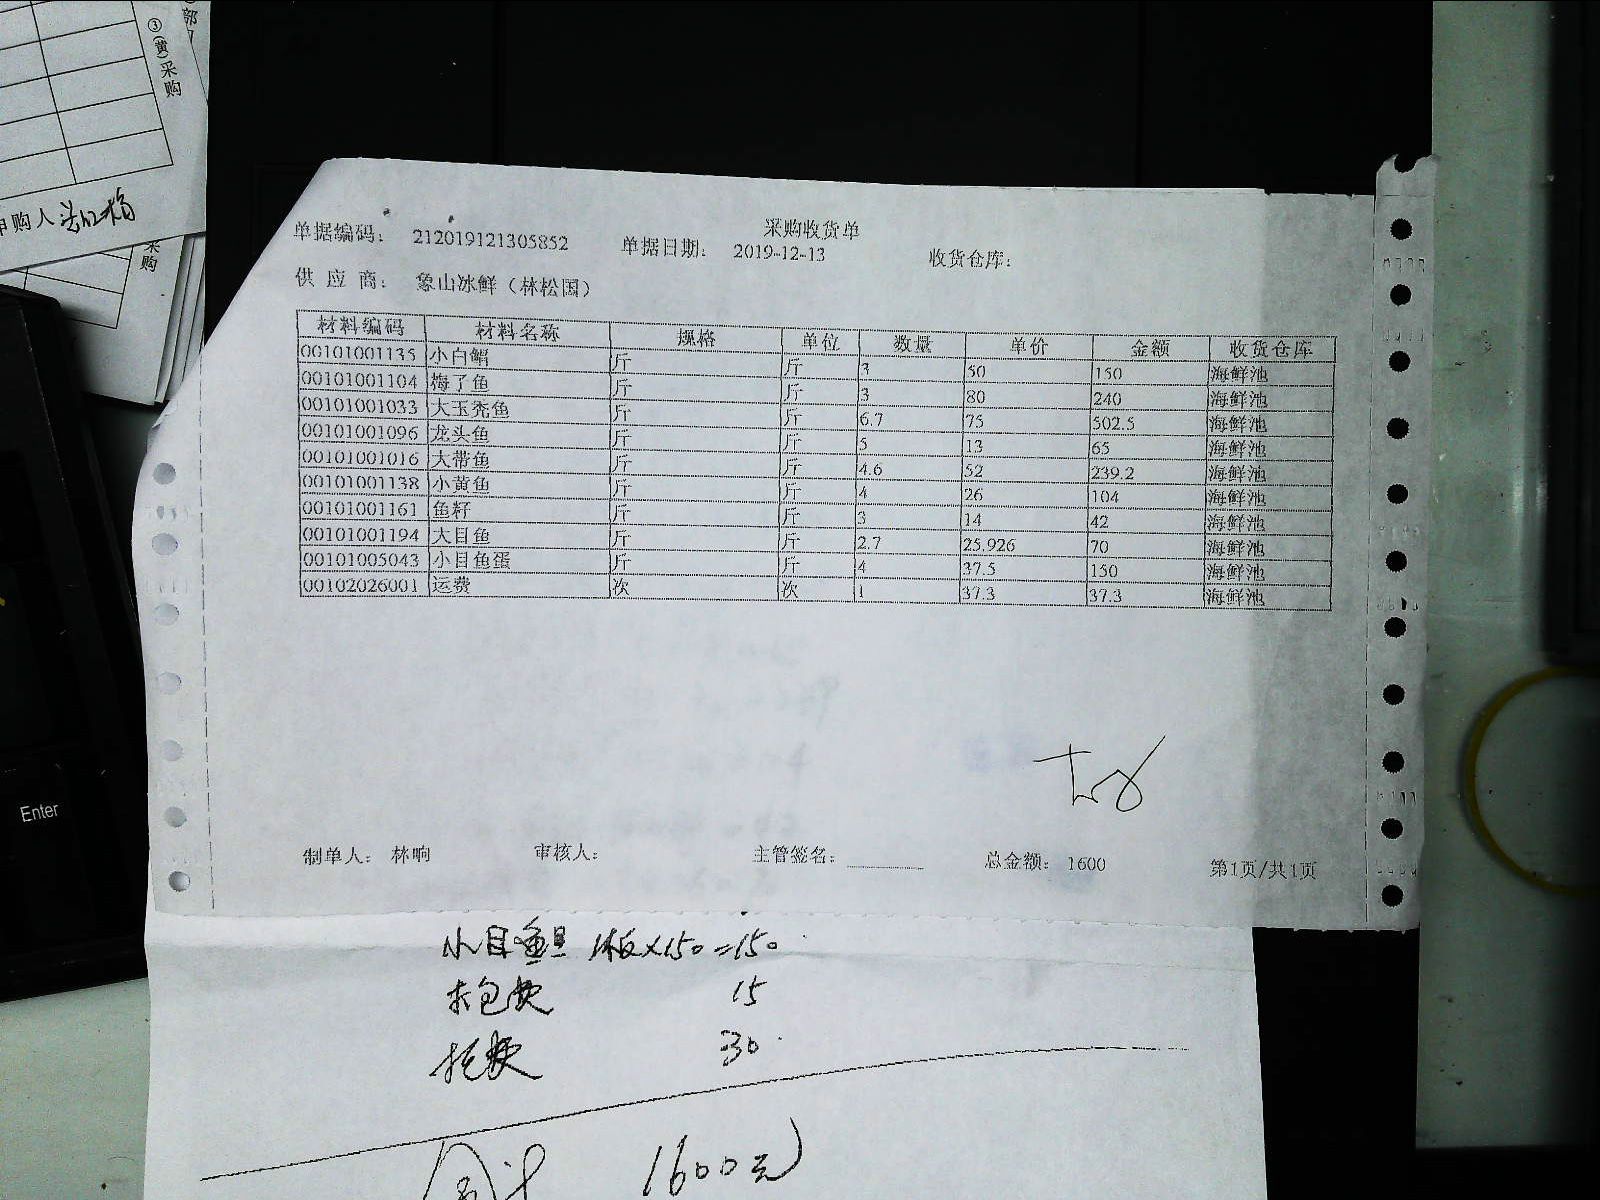 ③(黄)采购
部门
申购人
采购
Enter
采购收货单
单据编码: 212019121305852 单据日期: 2019-12-13 收货仓库:
供应商: 象山冰鲜(林松国)
材料编码 材料名称 规格 单位 数量 单价 金额 收货仓库
00101001135 小白鲳 斤 斤 3 50 150 海鲜池
00101001104 梅子鱼 斤 斤 3 80 240 海鲜池
00101001033 大玉秃鱼 斤 斤 6.7 75 502.5 海鲜池
00101001096 龙头鱼 斤 斤 5 13 65 海鲜池
00101001016 大带鱼 斤 斤 4.6 52 239.2 海鲜池
00101001138 小黄鱼 斤 斤 4 26 104 海鲜池
00101001161 鱼籽 斤 斤 3 14 42 海鲜池
00101001194 大目鱼 斤 斤 2.7 25.926 70 海鲜池
00101005043 小目鱼蛋 斤 斤 4 37.5 150 海鲜池
00102026001 运费 次 次 1 37.3 37.3 海鲜池
制单人: 林响 审核人: 主管签名: 总金额: 1600 第1页/共1页
小目鱼旦 1板×150=150
打包费 15
托费 30
合计 1600元